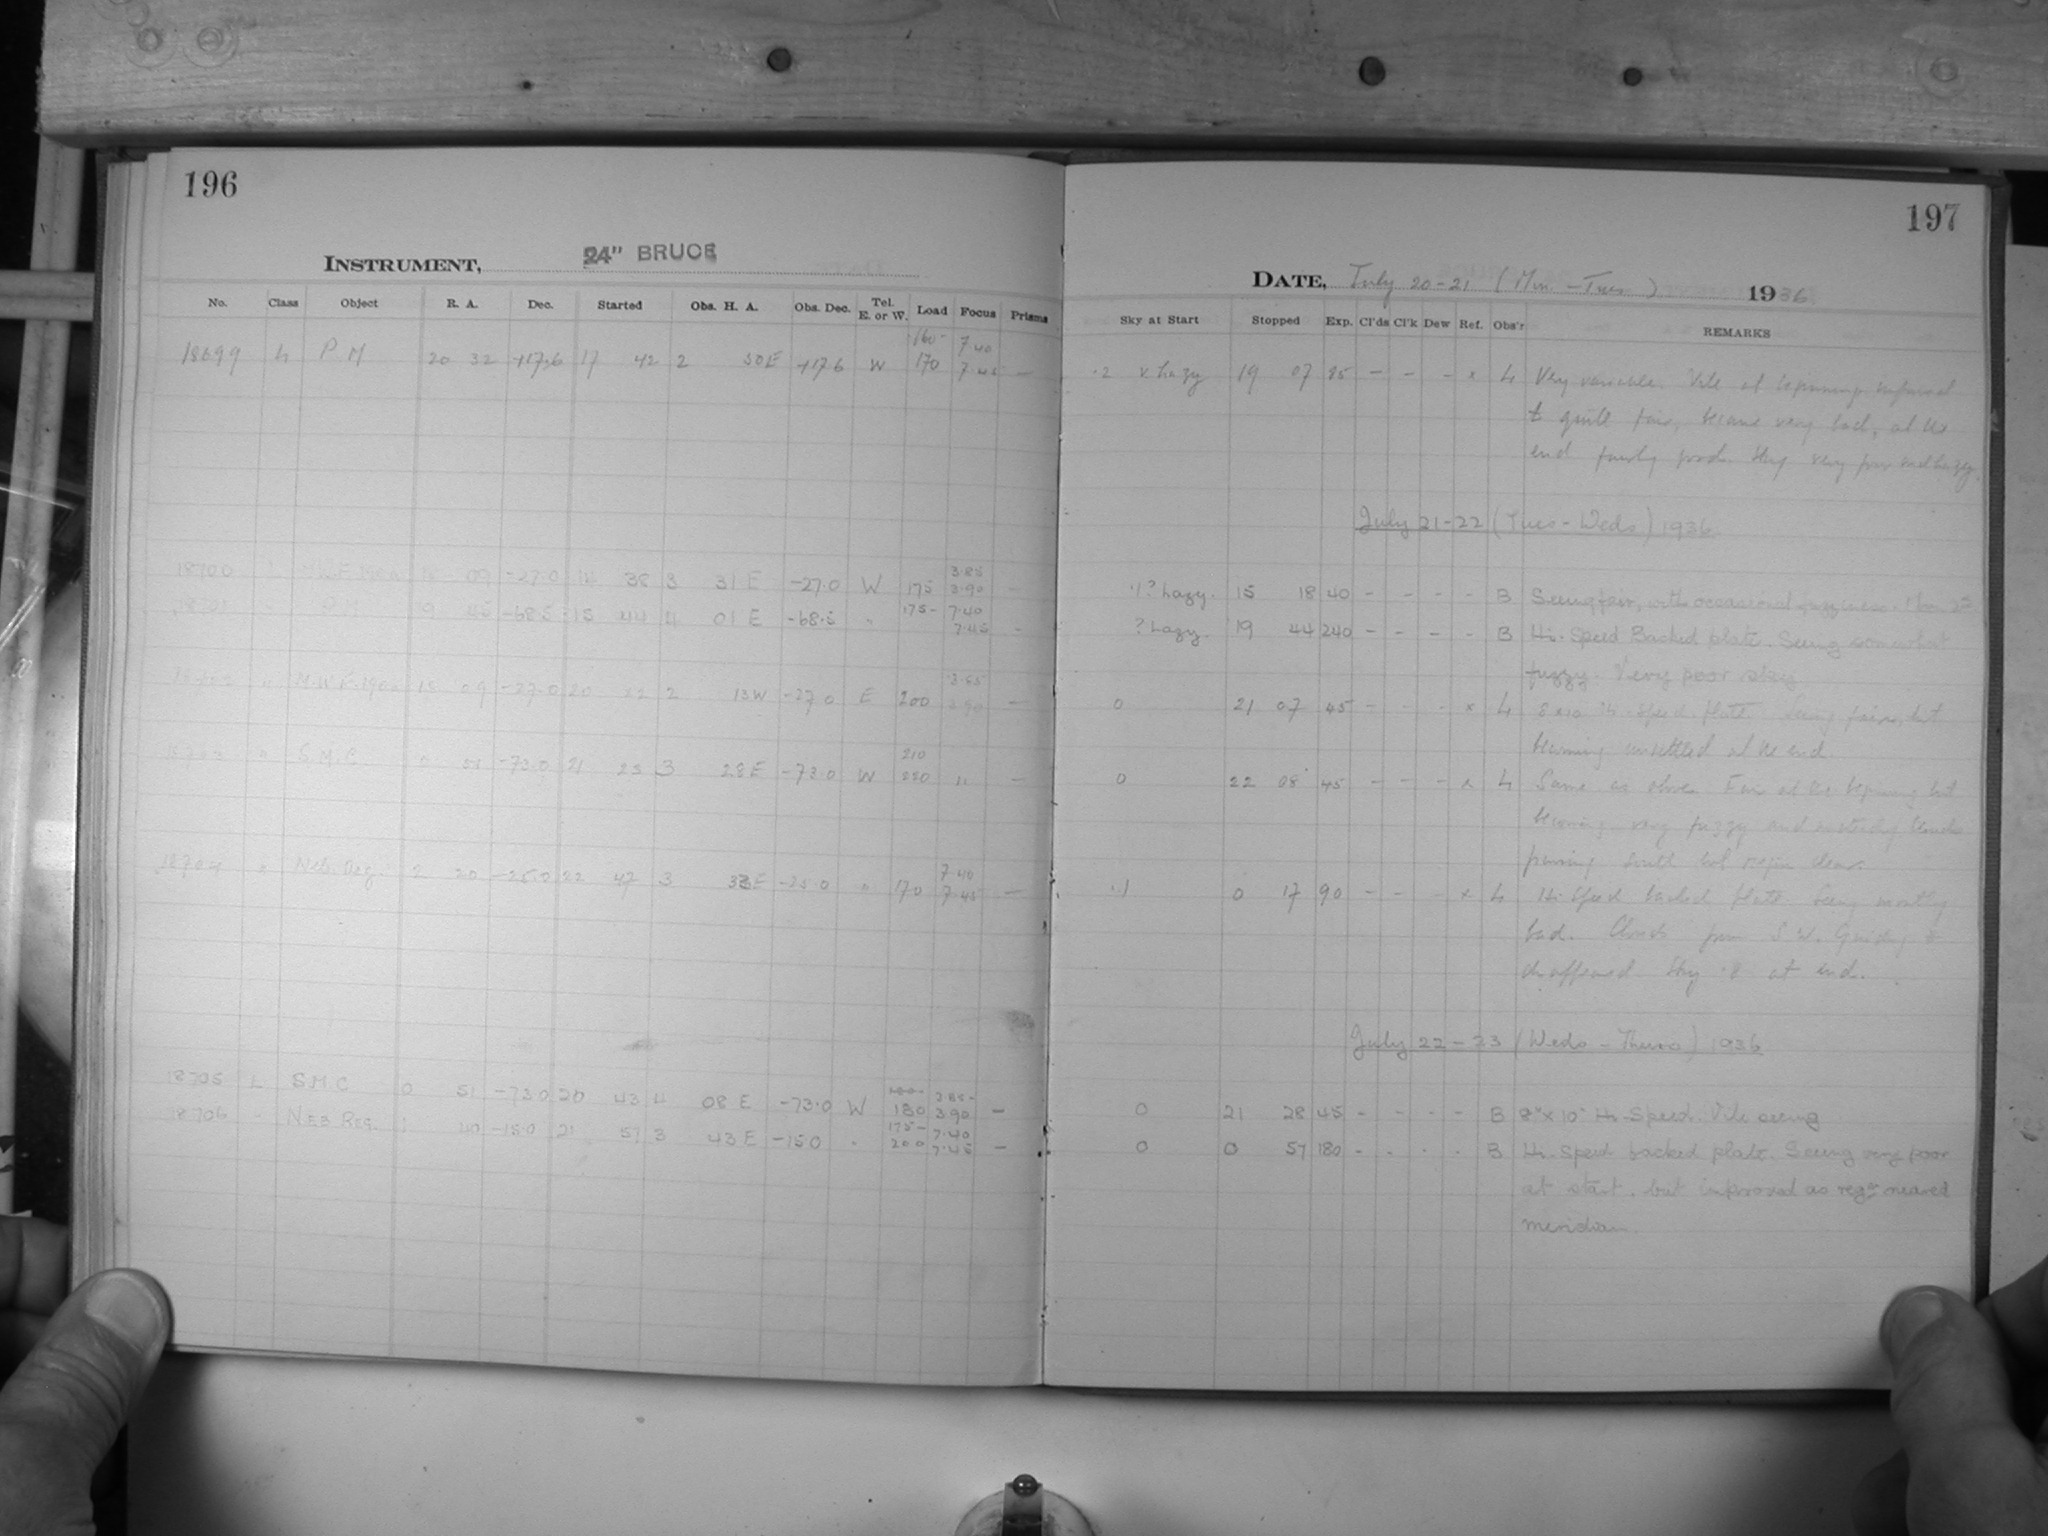 196
INSTRUMENT, 24" BRUCE
No. Class Object R. A. Dec. Started Obs. H. A. Obs. Dec. Tel. E. or W. Load Focus Prisms
160- 7.40
18699 L PM 20 32 +17.6 17 42 2 50E +17.6 W 170 7.45 —
3.85
18700 09 -27.0 14 38 3 31 E -27.0 W 175 3.90 -
P.M. 19 45 -68.5 15 44 4 01 E -68.5 " 175- 7.40
7.45 -
09 -27.0 20 22 2 13W -27.0 E 200 3.90 —
210
S.M.C. 0 51 -73.0 21 23 3 28E -73.0 W 220 " —
7.40
18704 " Neb. Reg. 2 20 -25.0 22 47 3 33E -25.0 " 170 7.45 —
100- 3.85-
18705 L SMC 0 51 -73.0 20 43 4 08 E -73.0 W 180 3.90 —
175- 7.40
18706 " NEB Reg. 1 40 -15.0 21 57 3 43 E -15.0 " 200 7.45 —
197
DATE, July 20-21 (Mon - Tues) 1936
Sky at Start Stopped Exp. Cl'ds Cl'k Dew Ref. Obs'r REMARKS
.2 x hazy 19 07 85 - - - x L Very variable. Vile at beginning improved
to quite fair, became very bad, at the
end fairly good. Sky very poor and hazy.
July 21-22 (Tues - Weds) 1936
.1? hazy. 15 18 40 - - - - B Seeing fair, with occasional fuzziness.
? hazy. 19 44 240 - - - - B Hi-Speed Backed plate. Seeing somewhat
fuzzy. Very poor sky
0 21 07 45 - - - x L 8x10 Hi-Speed plate. Seeing fair, but
becoming unsettled at the end.
0 22 08 45 - - - x L Same as above. Fair at the beginning but
becoming very fuzzy and clouds
passing south but region clear.
.1 0 17 90 - - - x L Hi-Speed backed plate. Seeing mostly
bad. Clouds from S.W. Guiding *
disappeared. Sky .2 at end.
July 22-23 (Weds - Thurs) 1936
0 21 28 45 - - - - B 8" x 10" Hi-Speed. Vile seeing
0 0 57 180 - - - - B Hi-Speed backed plate. Seeing very poor
at start, but improved as regn neared
meridian.